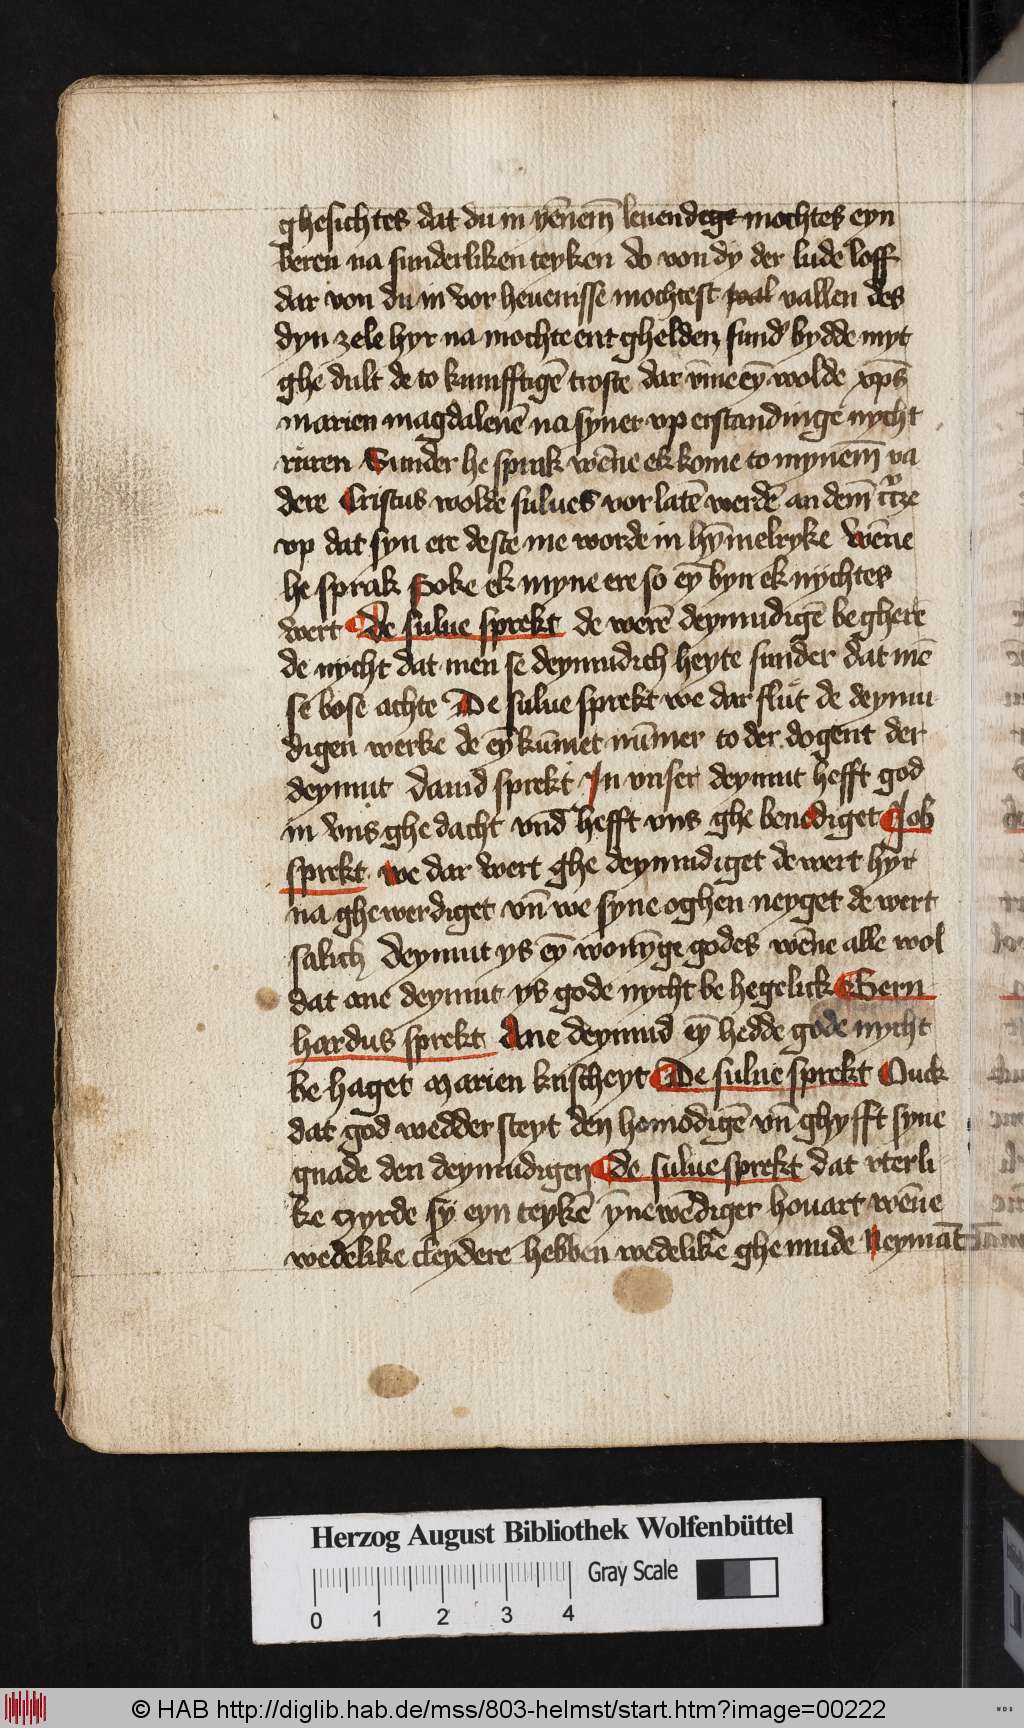 ghesichtes dat du in yēnem̄ leuendige mochtes eyn
beren na sunderliken teyken do von dy der lude loff
dar von du in vor heuenisse mochtest vallen des
dyn zele hyr na mochte ent ghelden sund' bydde myt
ghe dult de to kumfftigē troste dar v̄me eȳ wolde xp̄s
marien magdalenē na syner vp erstandinge nycht
ruren Sunder he sprak wēne ek kome to mynem̄ va
dere Cristus wolde sulues vor latē werdē an dem̄
vp dat syn ere deste me worde in hȳmelryke wēne
he sprak Soke ek myne ere so eȳ byn ek nychtes
wert De sulue sprekt de werē deymudigē begherē
de nycht dat men se deymudich heyte sunder dat mē
se bose achte De sulue sprekt we dar flut de deymu
digen werke de eȳ kūmet nūmer to der dogent der
deymut dauid sprekt In vnser deymut hefft god
in vns ghe dacht vnd hefft vns ghe benediget Job
sprekt we dar wert ghe deymudiget de wert hyr
na ghewerdiget vn̄ we syne oghen neyget de wert
salich deymut ys eȳ wonȳge godes wēne alle wol
dat ane deymut ys gode nycht be hegelick Bern
hardus sprekt Ane deymud eȳ hedde gode nycht
be haget marien kuscheyt De sulue sprekt Ouck
dat god wedder steyt den homodigē vn̄ ghyfft syne
gnade den deymudigen de sulue sprekt dat vterli
ke zyrde sy eyn teykē ȳnewēdiger houart wēne
wedelike cleydere hebben wedelike ghe mude Neymāt
Herzog August Bibliothek Wolfenbüttel
Gray Scale
0 1 2 3 4
© HAB http://diglib.hab.de/mss/803-helmst/start.htm?image=00222